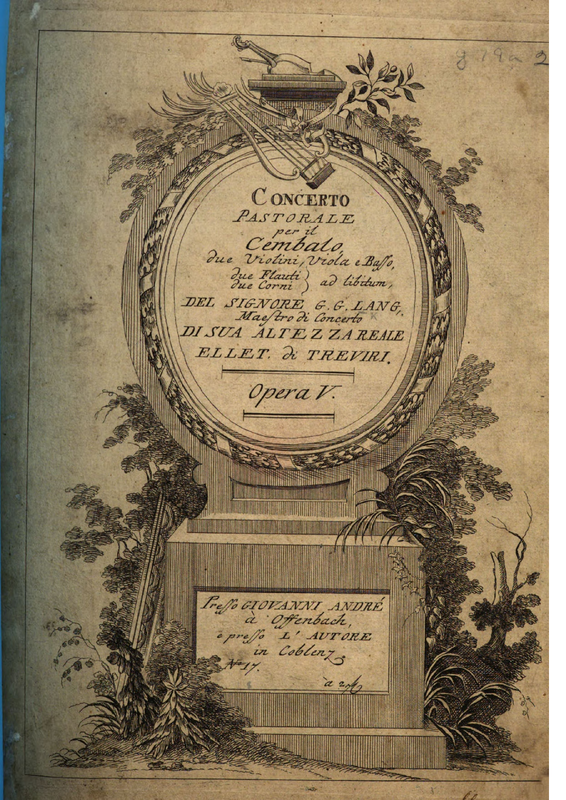 CONCERTO
PASTORALE
per il
Cembalo,
due Violini, Viola e Basso,
due Flauti
due Corni } ad libitum,
DEL SIGNORE G. G. LANG,
Maestro di Concerto
DI SUA ALTEZZA REALE
ELLET. di TREVIRI.
Opera V.
Presso GIOVANNI ANDRÉ
à Offenbach,
è presso L' AUTORE
in Coblenz
Nro 17.